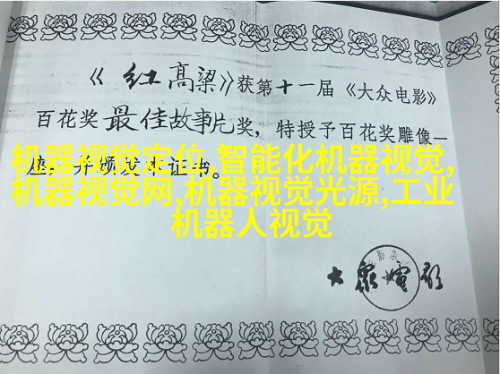 《红高粱》获第十一届《大众电影》
百花奖最佳故事片奖，特授予百花奖雕像一
座，并颁发本证书。
机器视觉定位,智能化机器视觉,
机器视觉网,机器视觉光源,工业
机器人视觉
大众电影